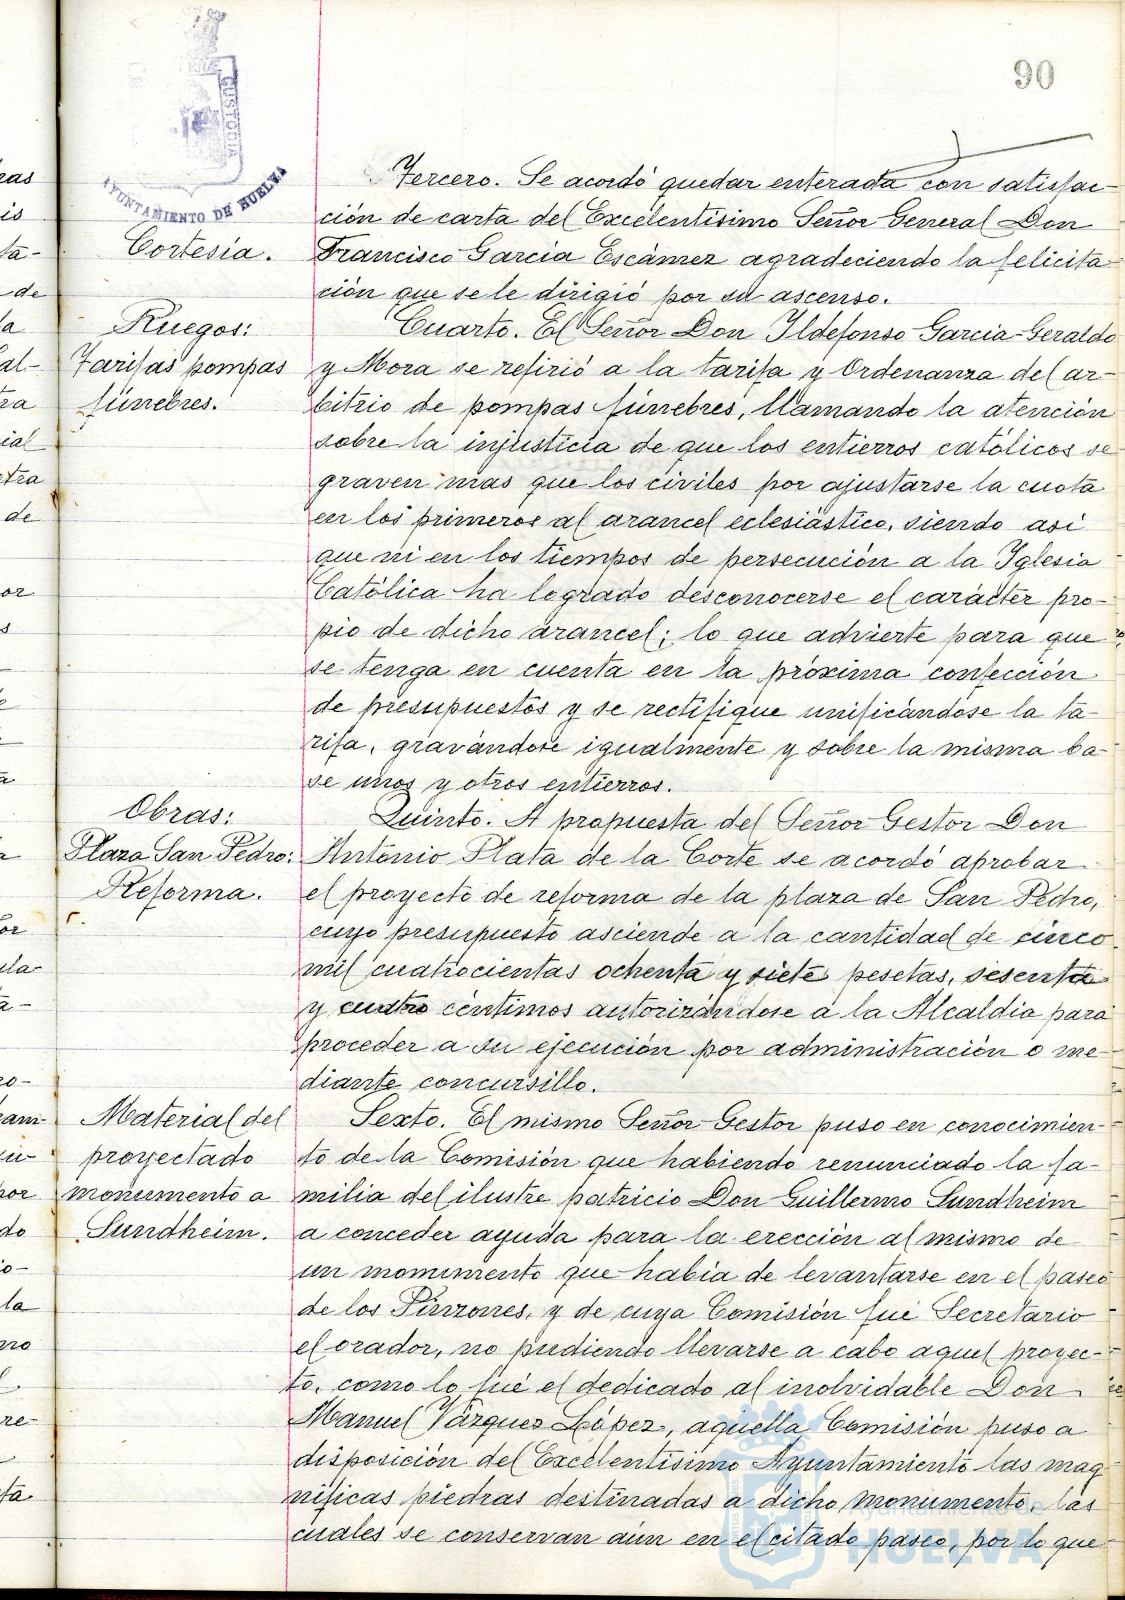 90
AYUNTAMIENTO DE HUELVA
Cortesía.
Tercero. Se acordó quedar enterada con satisfac-
ción de carta del Excelentísimo Señor General Don
Francisco García Escámez agradeciendo la felicita-
ción que se le dirigió por su ascenso.
Ruegos:
Tarifas pompas
fúnebres.
Cuarto. El Señor Don Ildefonso García-Geraldo
y Mora se refirió a la tarifa y Ordenanza del ar-
bitrio de pompas fúnebres, llamando la atención
sobre la injusticia de que los entierros católicos se
graven mas que los civiles por ajustarse la cuota
en los primeros al arancel eclesiástico, siendo así
que ni en los tiempos de persecución a la Iglesia
Católica ha logrado desconocerse el carácter pro-
pio de dicho arancel; lo que advierte para que
se tenga en cuenta en la próxima confección
de presupuestos y se rectifique unificándose la ta-
rifa, gravándose igualmente y sobre la misma ba-
se unos y otros entierros.
Obras:
Plaza San Pedro:
Reforma.
Quinto. A propuesta del Señor Gestor Don
Antonio Plata de la Corte se acordó aprobar
el proyecto de reforma de la plaza de San Pedro,
cuyo presupuesto asciende a la cantidad de cinco
mil cuatrocientas ochenta y siete pesetas, sesenta
y cuatro céntimos autorizándose a la Alcaldía para
proceder a su ejecución por administración o me-
diante concursillo.
Material del
proyectado
monumento a
Sundheim.
Sexto. El mismo Señor Gestor puso en conocimien-
to de la Comisión que habiendo renunciado la fa-
milia del ilustre patricio Don Guillermo Sundheim
a conceder ayuda para la erección al mismo de
un monumento que había de levantarse en el paseo
de los Pinzones, y de cuya Comisión fué Secretario
el orador, no pudiendo llevarse a cabo aquel proyec-
to, como lo fué el dedicado al inolvidable Don
Manuel Vázquez López, aquella Comisión puso a
disposición del Excelentísimo Ayuntamiento las mag-
níficas piedras destinadas a dicho monumento, las
cuales se conservan aún en el citado paseo, por lo que
Ayuntamiento de
HUELVA